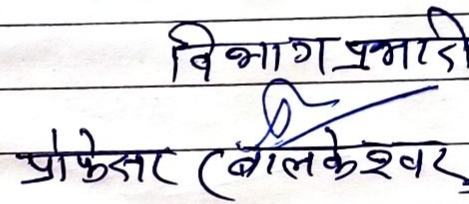 विभाग प्रभारी
प्रोफेसर (बालकेश्वर